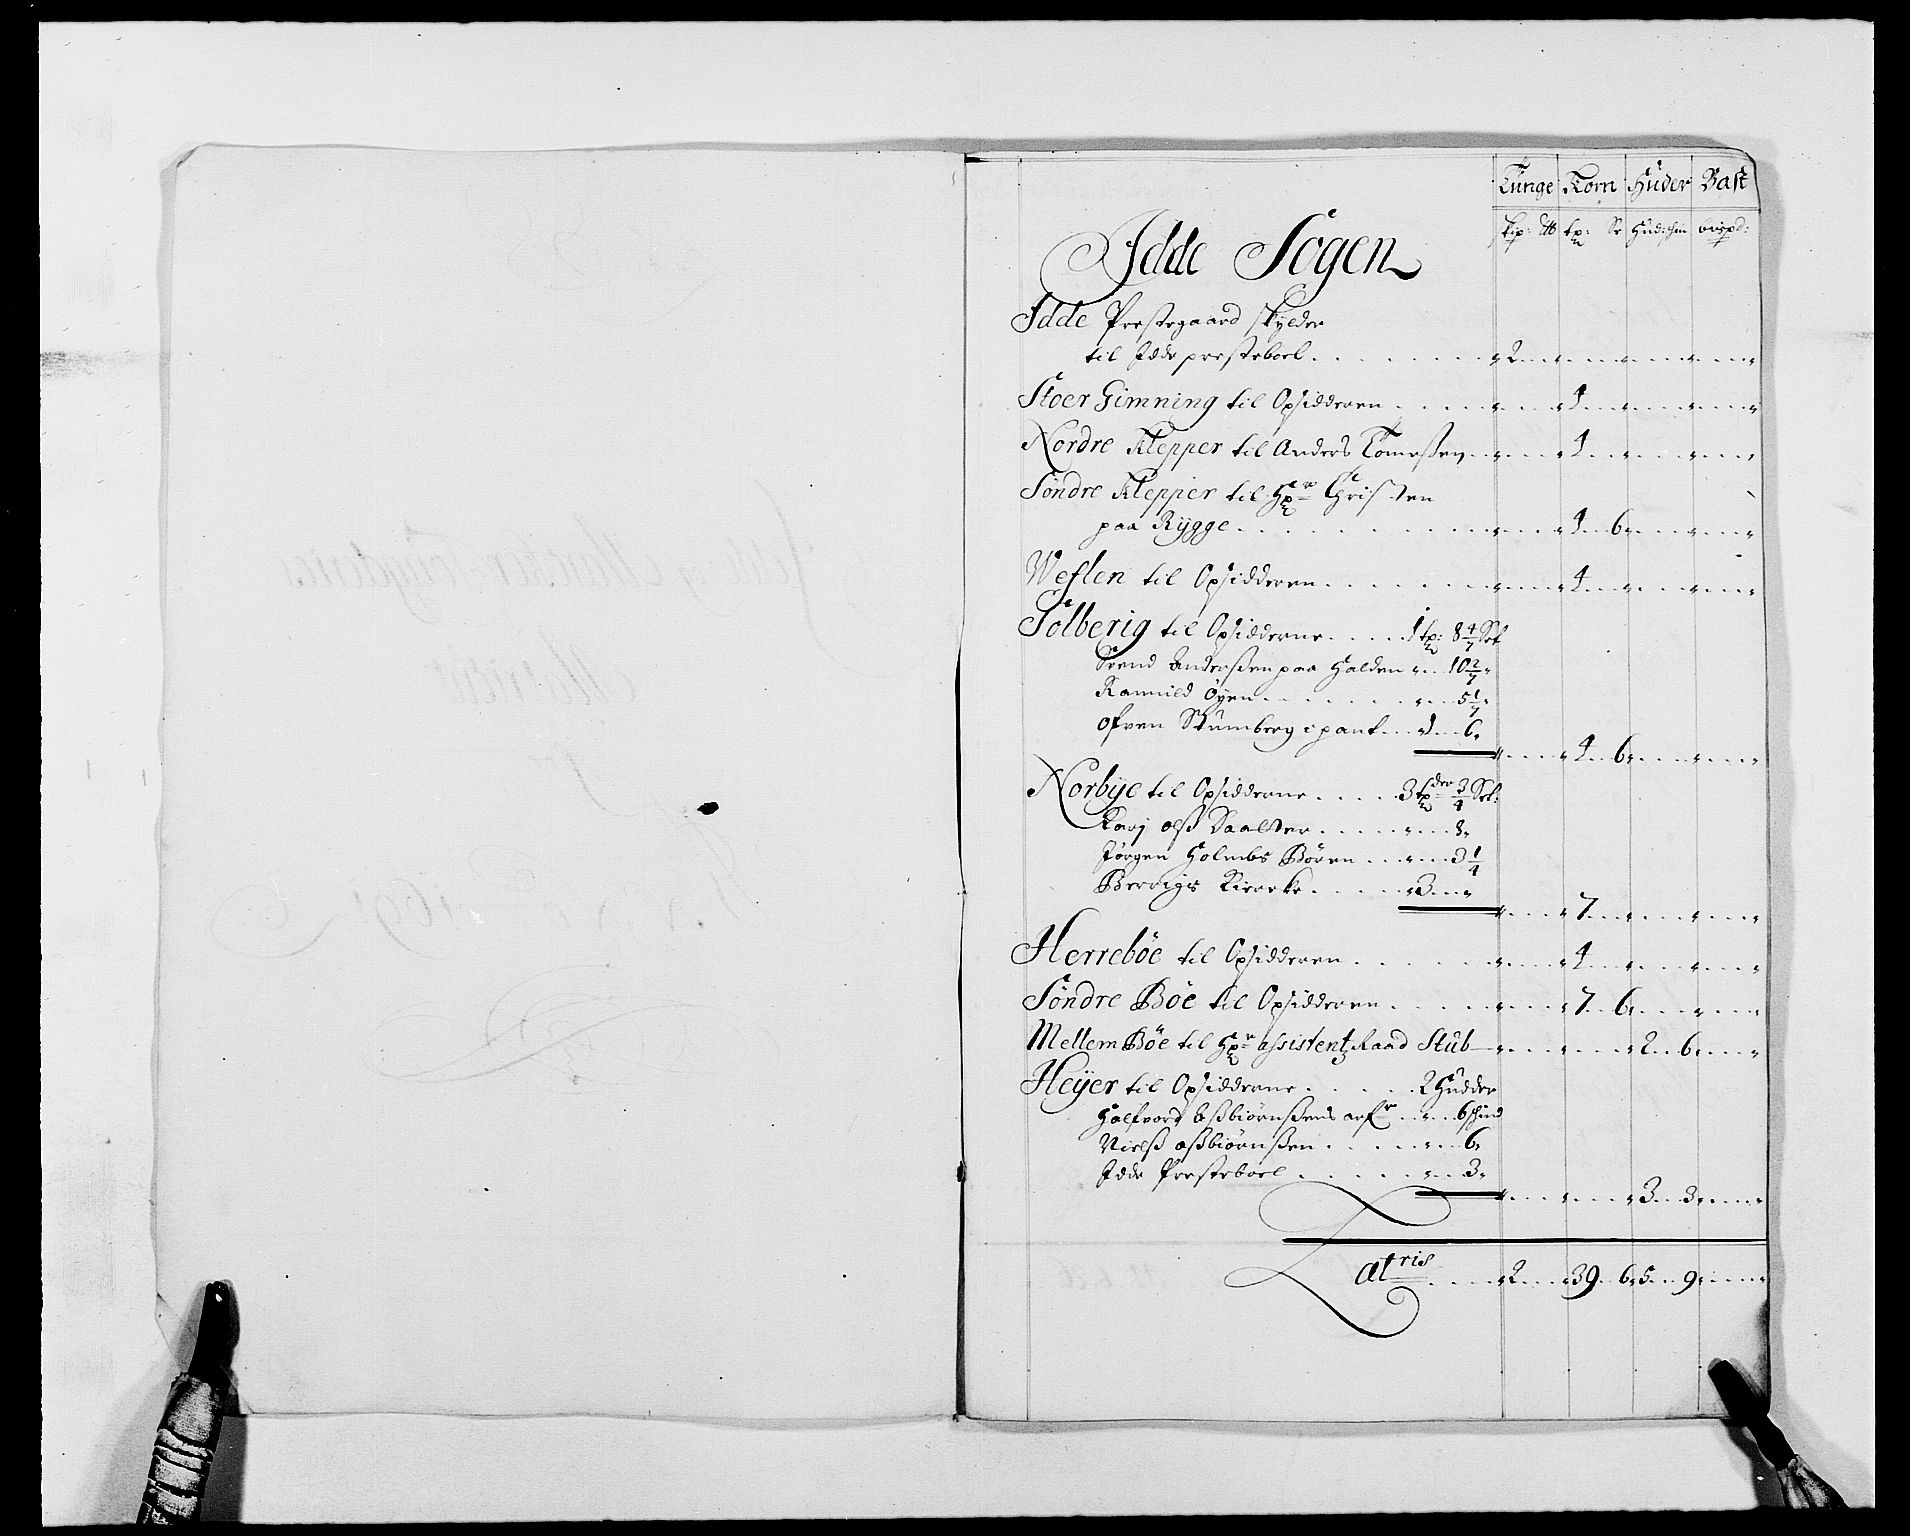 Tunge Korn Huder Bast
skp: ℔ tp: Se Hud: skin bispd:
Idde Sogen
Idde Prestegaard skylder
til Idde presteboel . . . . . . . 2
Stoer Gimning til Opsidderen . . . . 4
Nordre Klepper til Anders Tomeßen . . 4
Söndre Klepper til Hr Christen
paa Rÿgge . . . . . . . . . 4 . . 6
Weflen til Opsidderen . . . . . . 4
Solberig til Opsidderne . . . . . 1 tp: 8 4/7 Set
Svend Anderßen paa Halden . . . 10 2/7
Rannild Öyen . . . . . . . . 5 1/7
ofven Stumberg i pant . . . 1 . . 6
4 . . 6
Norbÿe til Opsidderne . . . . . 3 tpder 3/4 Set:
Karj olß Saalter . . . . . . 8
Jörgen Holmbs Börn . . . . 3 1/4
Berrigs Kiercke . . . . . 3
7
Herreböe til Opsidderen . . . . . 4
Söndre Böe til Opsidderen . . . . . 7 . . 6
Mellem Böe til Hr assistentz Raad Stub 2 . . 6
Heÿer til Opsidderne . . . . . 2 Hudder
Halfvord Aßbiörnßens arfr . . . 6 skind
Nielß aßbiörnßen . . . . . . 6
Idde Presteboel . . . . . . 3
3 . . 3
Latris . . . . 2 . . . 39 . . 6 . 5 . . 9